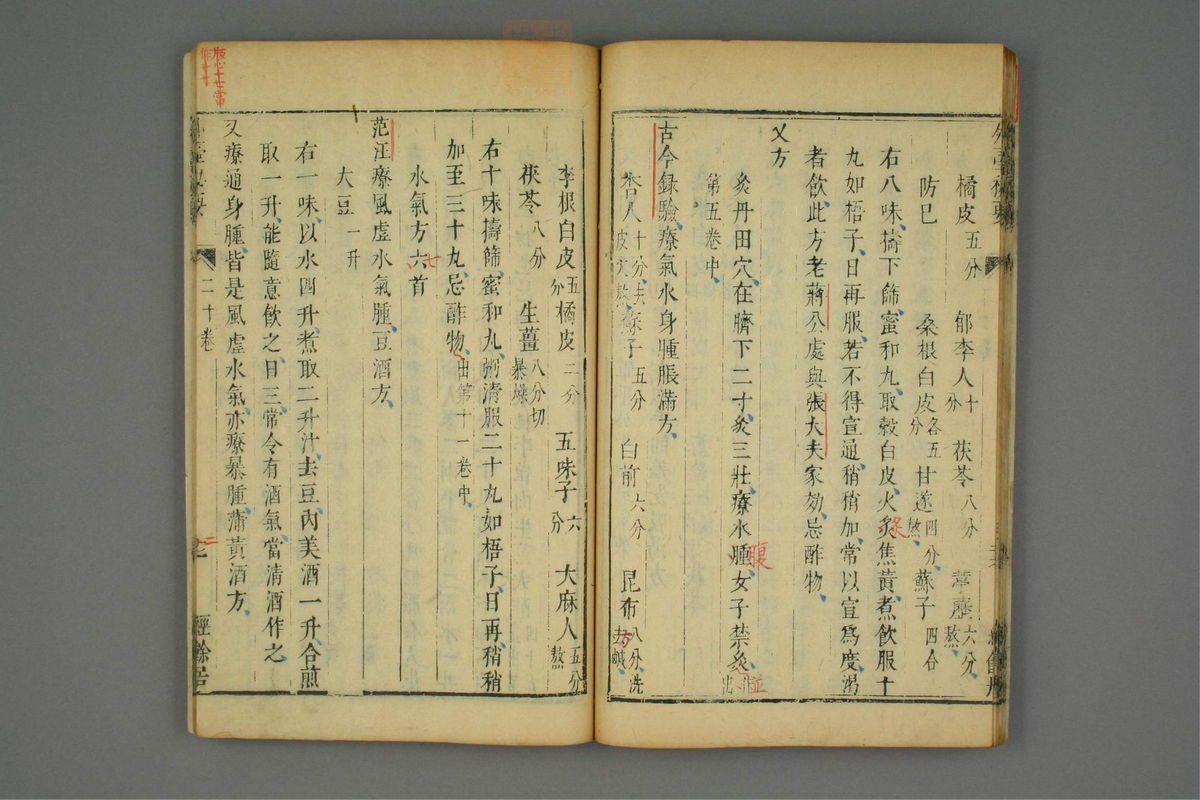 橘皮五分 郁李人十分 茯苓八分 葶藶六分熬
防巳 桑根白皮各五分 甘遂四分熬 蘇子四合
右八味擣下篩蜜和丸取穀白皮火炙焦黃煮飲服十
丸如梧子日再服若不得宣通稍稍加常以宣爲度渴
者飲此方老蔣公處與張大夫家効忌酢物
又方
灸丹田穴在臍下二寸灸三壯療水腫女子禁灸並出
第五卷中
古今録驗療氣水身腫脹滿方
杏人十分去皮尖熬 蘇子五分 白前六分 昆布八分洗去鹹
李根白皮五分 橘皮二分 五味子六分 大麻人五分熬
茯苓八分 生薑八分切暴燥
右十味擣篩蜜和丸粥清服二十丸如梧子日再稍稍
加至三十丸忌酢物出第十一卷中
水氣方六首
七
范汪療風虛水氣腫豆酒方
大豆一升
右一味以水四升煮取二升汁去豆內美酒一升合煎
取一升能隨意飲之日三常令有酒氣當清酒作之
又療通身腫皆是風虛水氣亦療暴腫蒲黃酒方
二十卷
經餘居
腹
炙
並
版心十七當
作十六